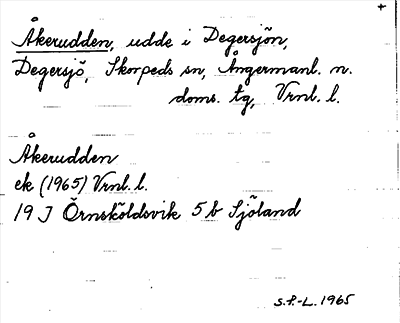 +
Åkerudden, udde i Degersjön,
Degersjö, Skorpeds sn, Ångermanl. n.
doms. tg, Vrnl. l.
Åkerudden
ek (1965) Vrnl. l.
19 J Örnsköldsvik 5 b Sjöland
S.F.-L. 1965